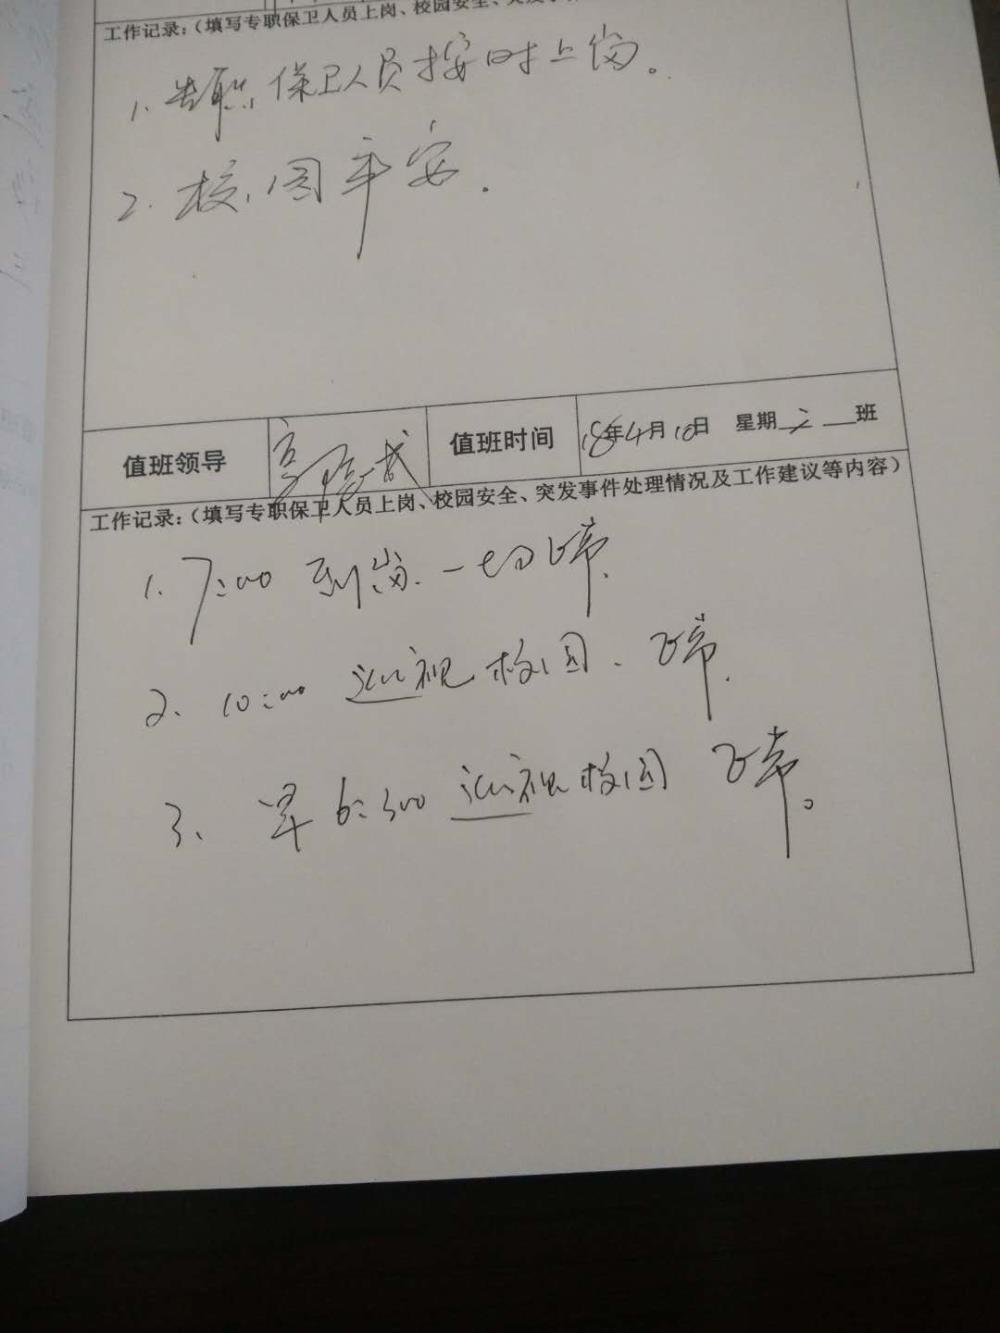 工作记录:（填写专职保卫人员上岗、校园安全、突发事
1. 专职保卫人员按时上岗。
2. 校园平安.
值班领导
值班时间 18年4月10日 星期二 班
工作记录:（填写专职保卫人员上岗、校园安全、突发事件处理情况及工作建议等内容）
1. 7:00 到岗. 一切正常.
2、10:00 巡视校园、正常.
3、早 6:30 巡视校园 正常。